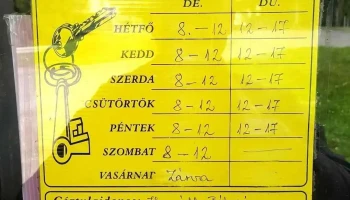 DE. DU.
HÉTFŐ 8.-12 12-17
KEDD 8-12 12-17
SZERDA 8-12 12-17
CSÜTÖRTÖK 8-12 12-17
PÉNTEK 8-12 12-17
SZOMBAT 8-12
VASÁRNAP Zárva